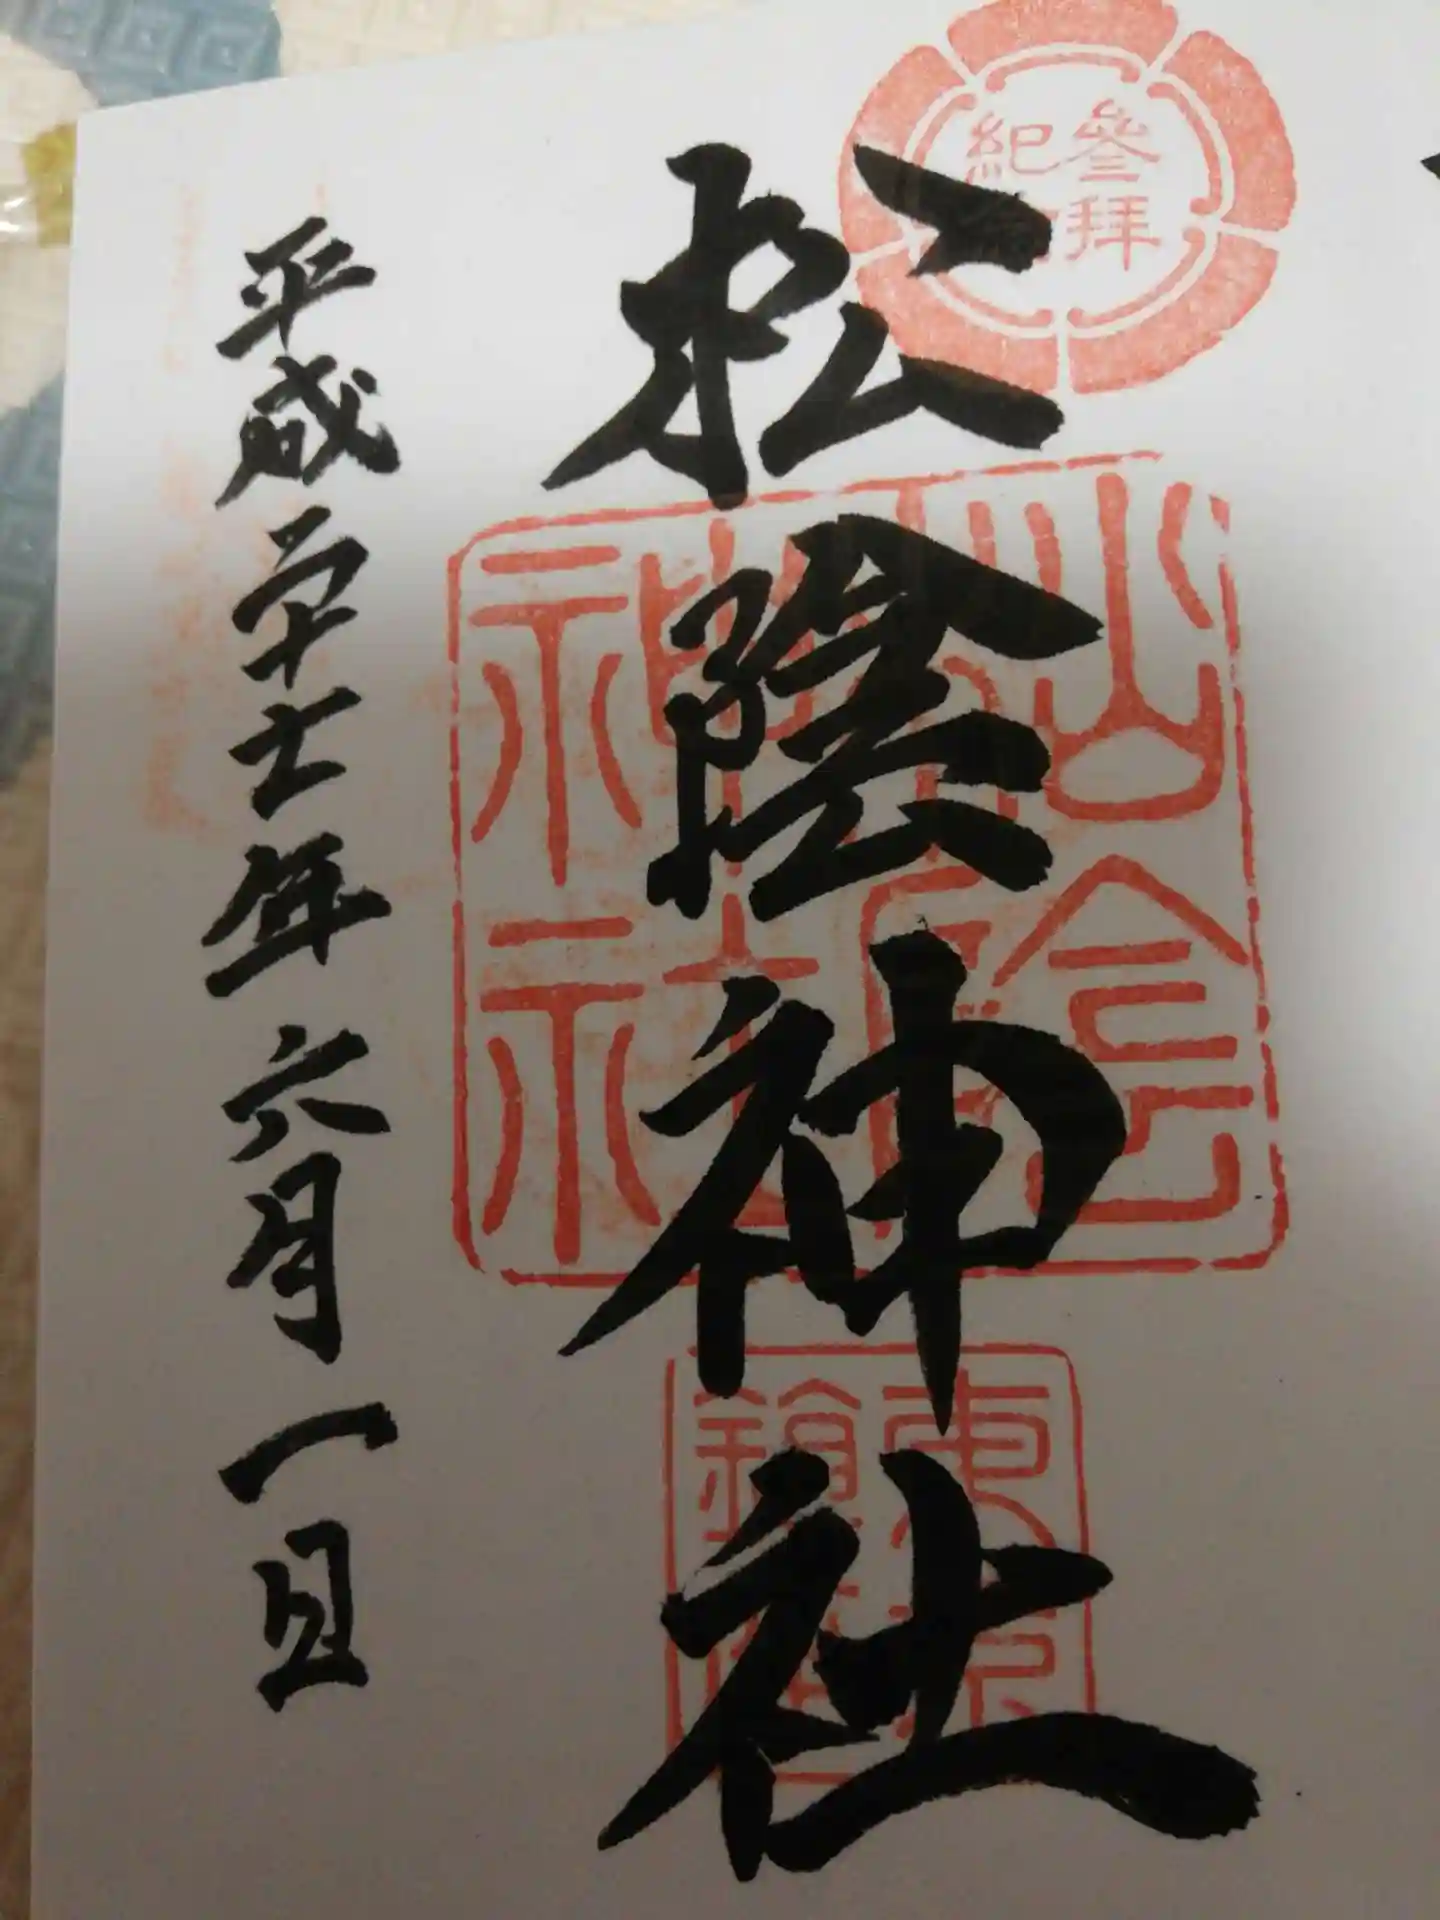 參拝
紀念
松陰神社
松陰
神社
平成二十七年六月一日